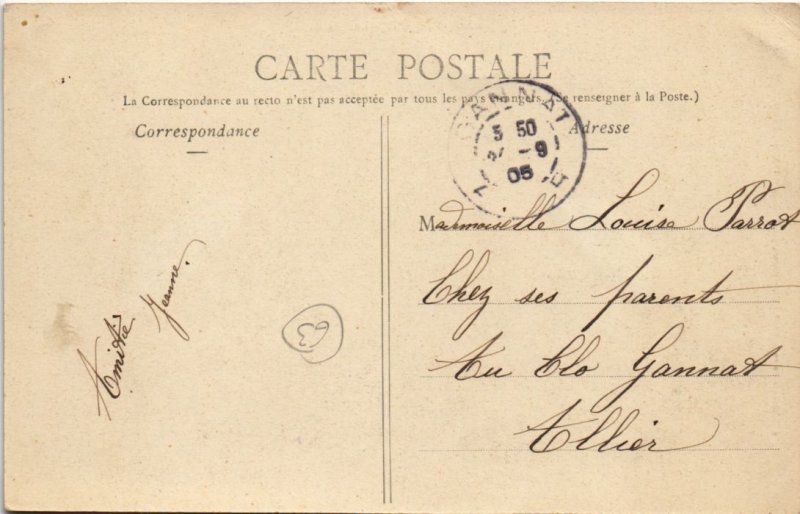 CARTE POSTALE
La Correspondance au recto n'est pas acceptée par tous les pays étrangers. (Se renseigner à la Poste.)
Correspondance
Adresse
GANNAT
5 50
-9
05
Mademoiselle Louise Parrot
Chez ses parents
Au Clo Gannat
Allier
Amitiés
Jeanne.
63